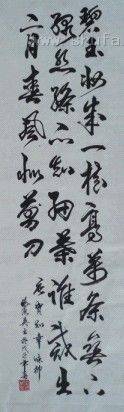 碧玉妝成一樹高萬條垂下
綠絲絛不知細葉誰裁出
二月春風似剪刀
唐賀知章詠柳